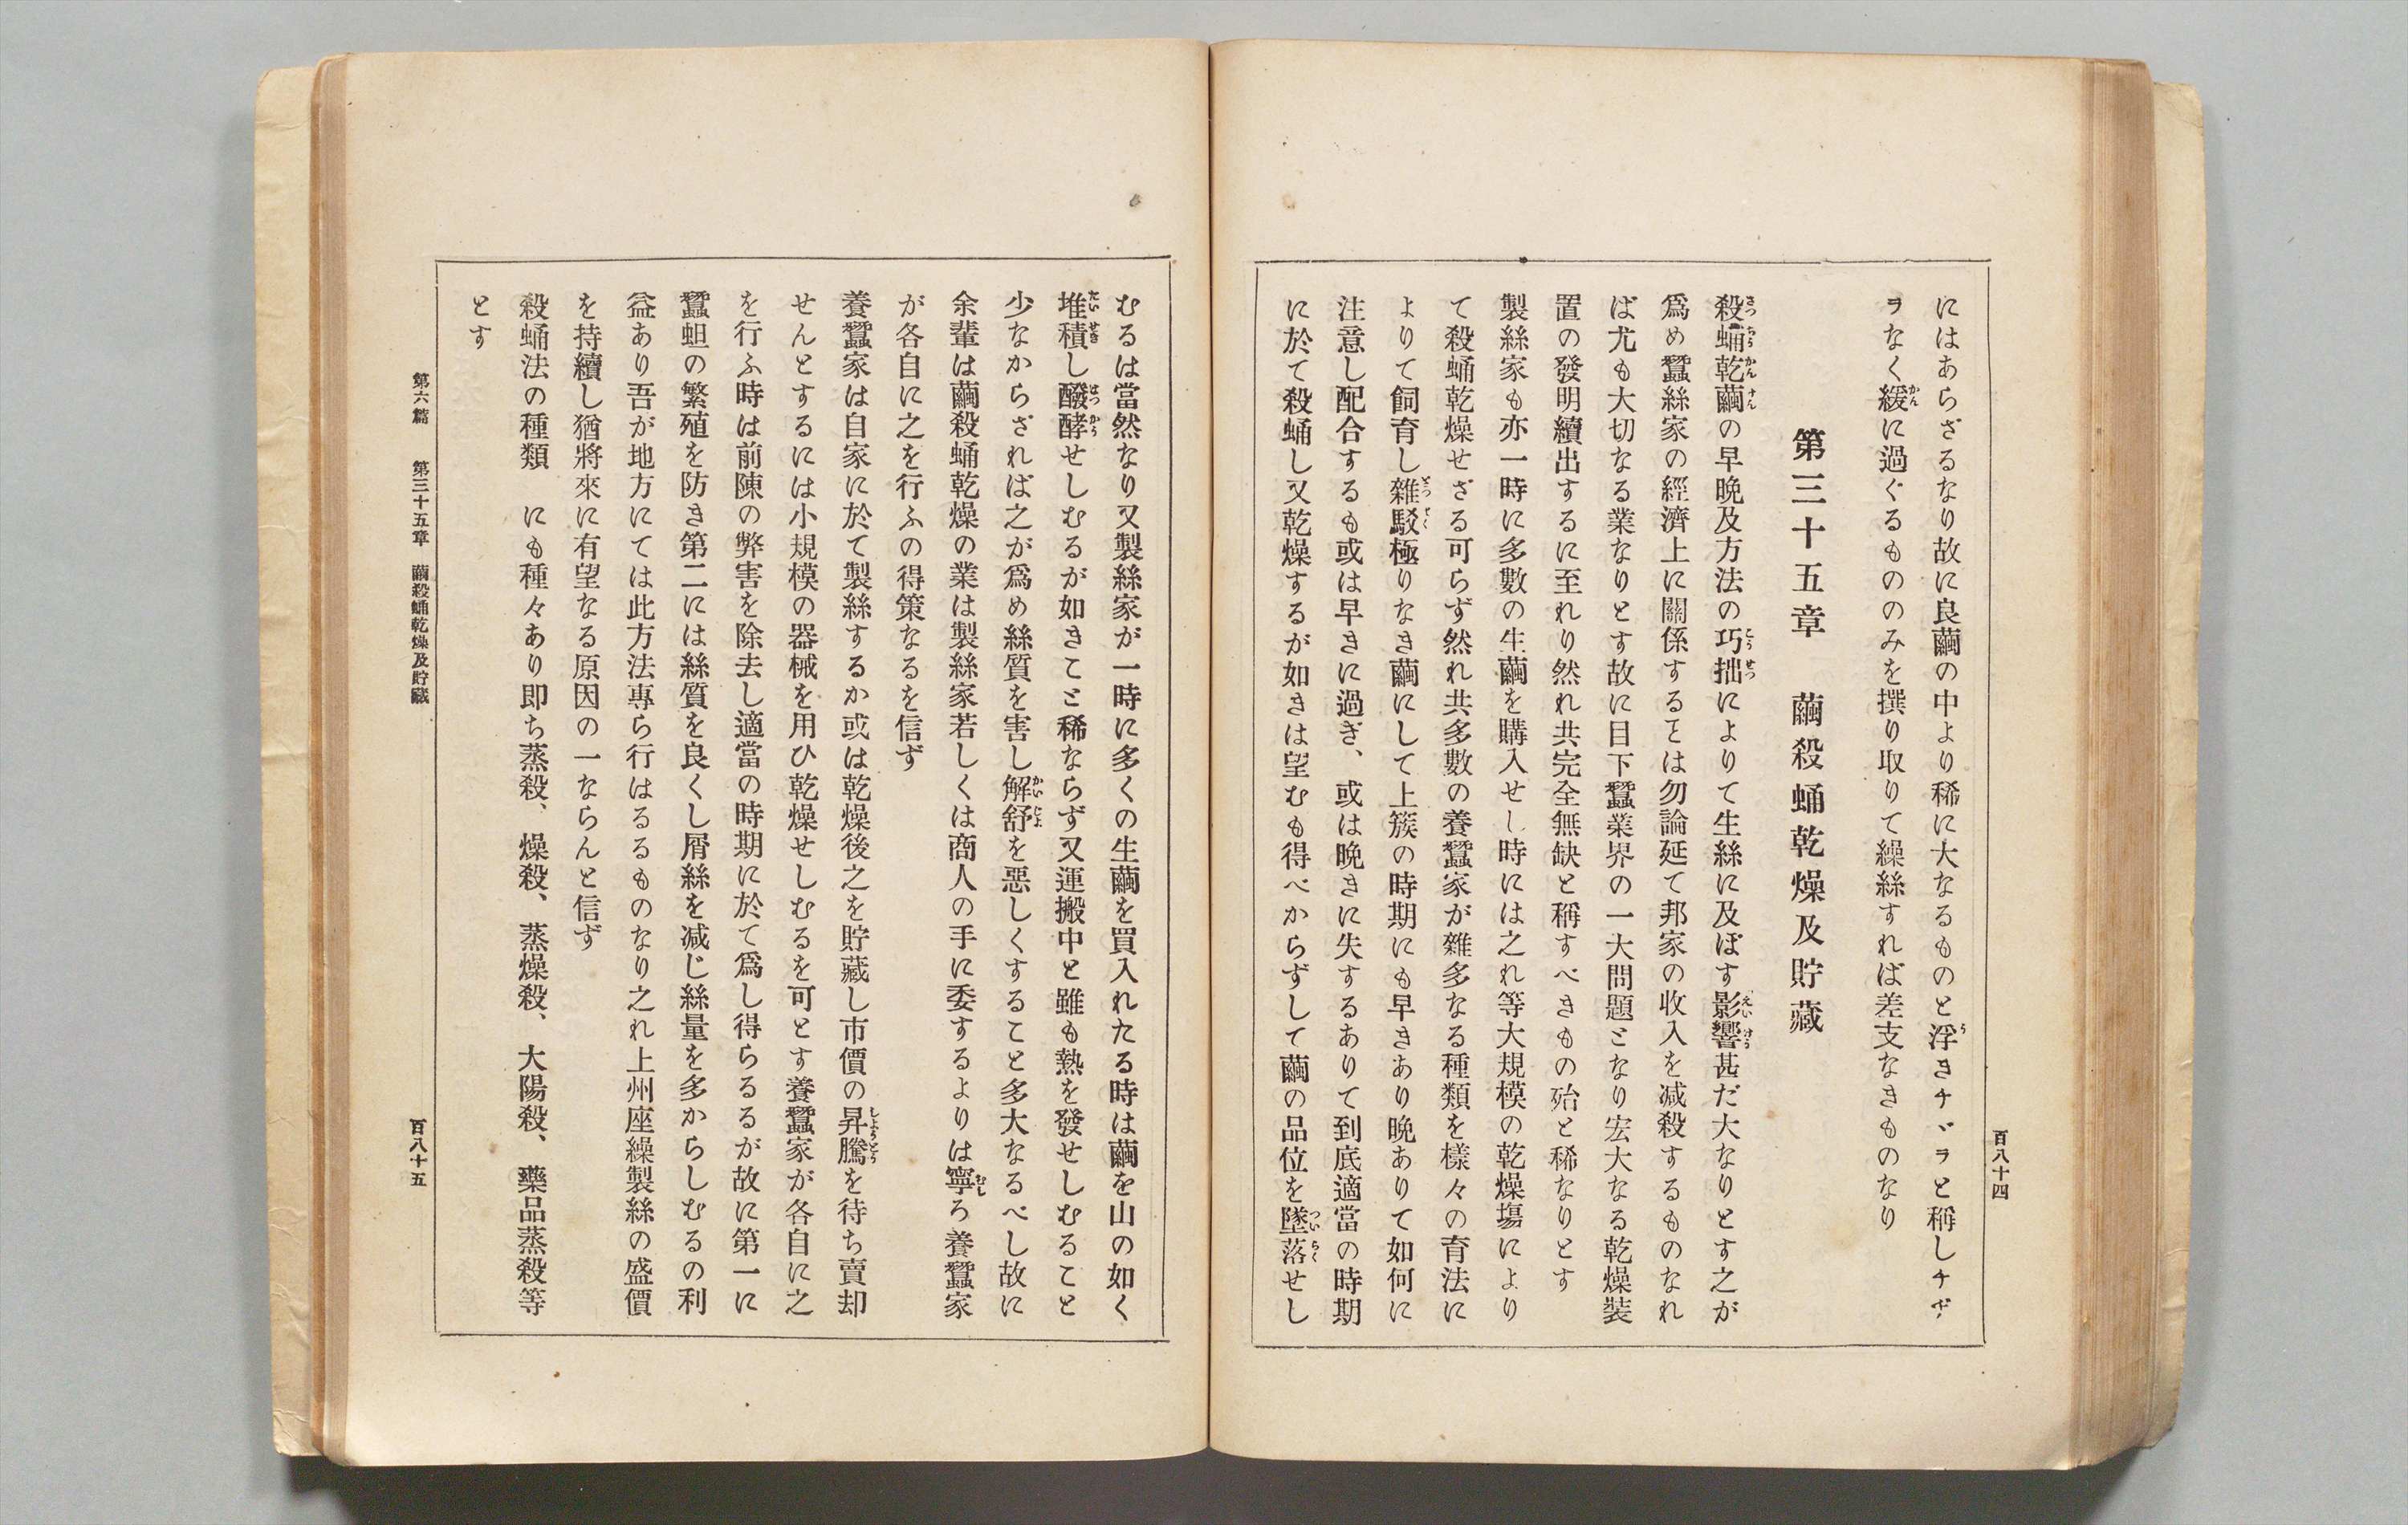 百八十四
にはあらざるなり故に良繭の中より稀に大なるものと浮きチヾラと稱しチヂ
ラなく緩に過ぐるもののみを撰り取りて繰絲すれば差支なきものなり
第三十五章　繭殺蛹乾燥及貯藏
殺蛹乾繭の早晩及方法の巧拙によりて生絲に及ぼす影響甚だ大なりとす之が
爲め蠶絲家の經濟上に關係するヿは勿論延て邦家の收入を減殺するものなれ
ば尤も大切なる業なりとす故に目下蠶業界の一大問題となり宏大なる乾燥裝
置の發明續出するに至れり然れ共完全無缺と稱すべきもの殆と稀なりとす
製絲家も亦一時に多數の生繭を購入せし時には之れ等大規模の乾燥塲により
て殺蛹乾燥せざる可らず然れ共多數の養蠶家が雜多なる種類を樣々の育法に
よりて飼育し雜駁極りなき繭にして上簇の時期にも早きあり晩ありて如何に
注意し配合するも或は早きに過ぎ、或は晩きに失するありて到底適當の時期
に於て殺蛹し又乾燥するが如きは望むも得べからずして繭の品位を墜落せし
むるは當然なり又製絲家が一時に多くの生繭を買入れたる時は繭を山の如く
堆積し醱酵せしむるが如きこと稀ならず又運搬中と雖も熱を發せしむること
少なからざれば之が爲め絲質を害し解舒を惡しくすること多大なるべし故に
余輩は繭殺蛹乾燥の業は製絲家若しくは商人の手に委するよりは寧ろ養蠶家
が各自に之を行ふの得策なるを信ず
養蠶家は自家に於て製絲するか或は乾燥後之を貯藏し市價の昇騰を待ち賣却
せんとするには小規模の器械を用ひ乾燥せしむるを可とす養蠶家が各自に之
を行ふ時は前陳の弊害を除去し適當の時期に於て爲し得らるるが故に第一に
蠶蛆の繁殖を防き第二には絲質を良くし屑絲を減じ絲量を多からしむるの利
益あり吾が地方にては此方法專ら行はるるものなり之れ上州座繰製絲の盛價
を持續し猶將來に有望なる原因の一ならんと信ず
殺蛹法の種類　にも種々あり即ち蒸殺、燥殺、蒸燥殺、大陽殺、藥品蒸殺等
とす
第六篇　第三十五章　繭殺蛹乾燥及貯藏
百八十五